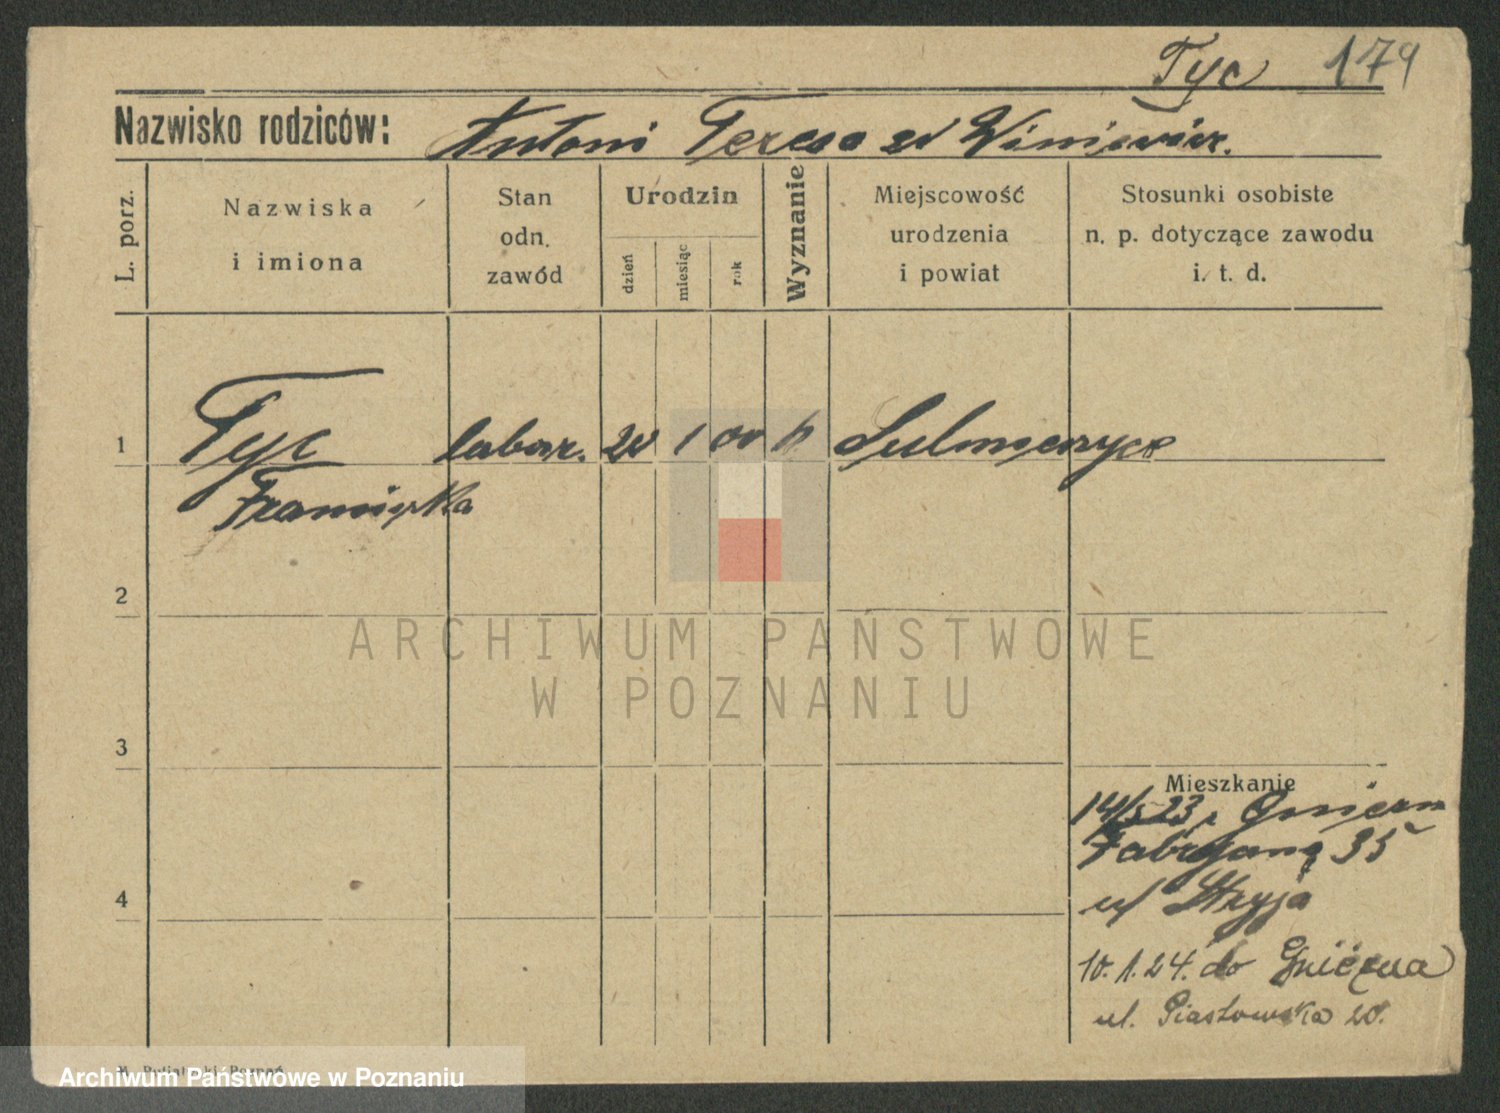 Tyc 179
Nazwisko rodziców: Antoni Teresa
L. porz.
Nazwiska
i imiona
Stan
odn.
zawód
Urodzin
dzień
miesiąc
rok
Wyznanie
Miejscowość
urodzenia
i powiat
Stosunki osobiste
n. p. dotyczące zawodu
i. t. d.
1 Tyc 1 00 k Sulmierzyce
Franciszka
2
3
4
Mieszkanie
14/5 23 Gniezn
35
u Stryja
10.1.24. do Gniezna
ul. Piastowska 20.
ARCHIWUM PAŃSTWOWE
W POZNANIU
Archiwum Państwowe w Poznaniu